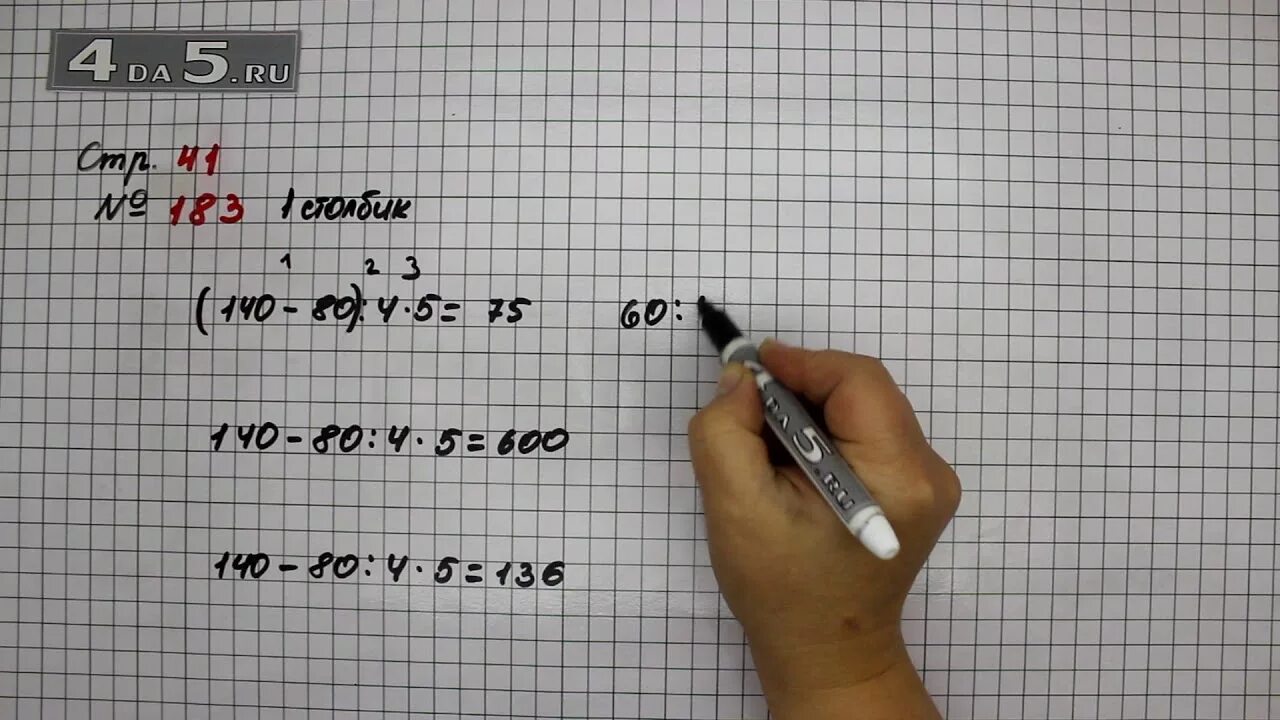 4DA5.RU
Стр. 41
№ 183 1 столбик
1 2 3
(140-80):4·5= 75 60:
140-80:4·5=600
140-80:4·5=136
DA5.RU